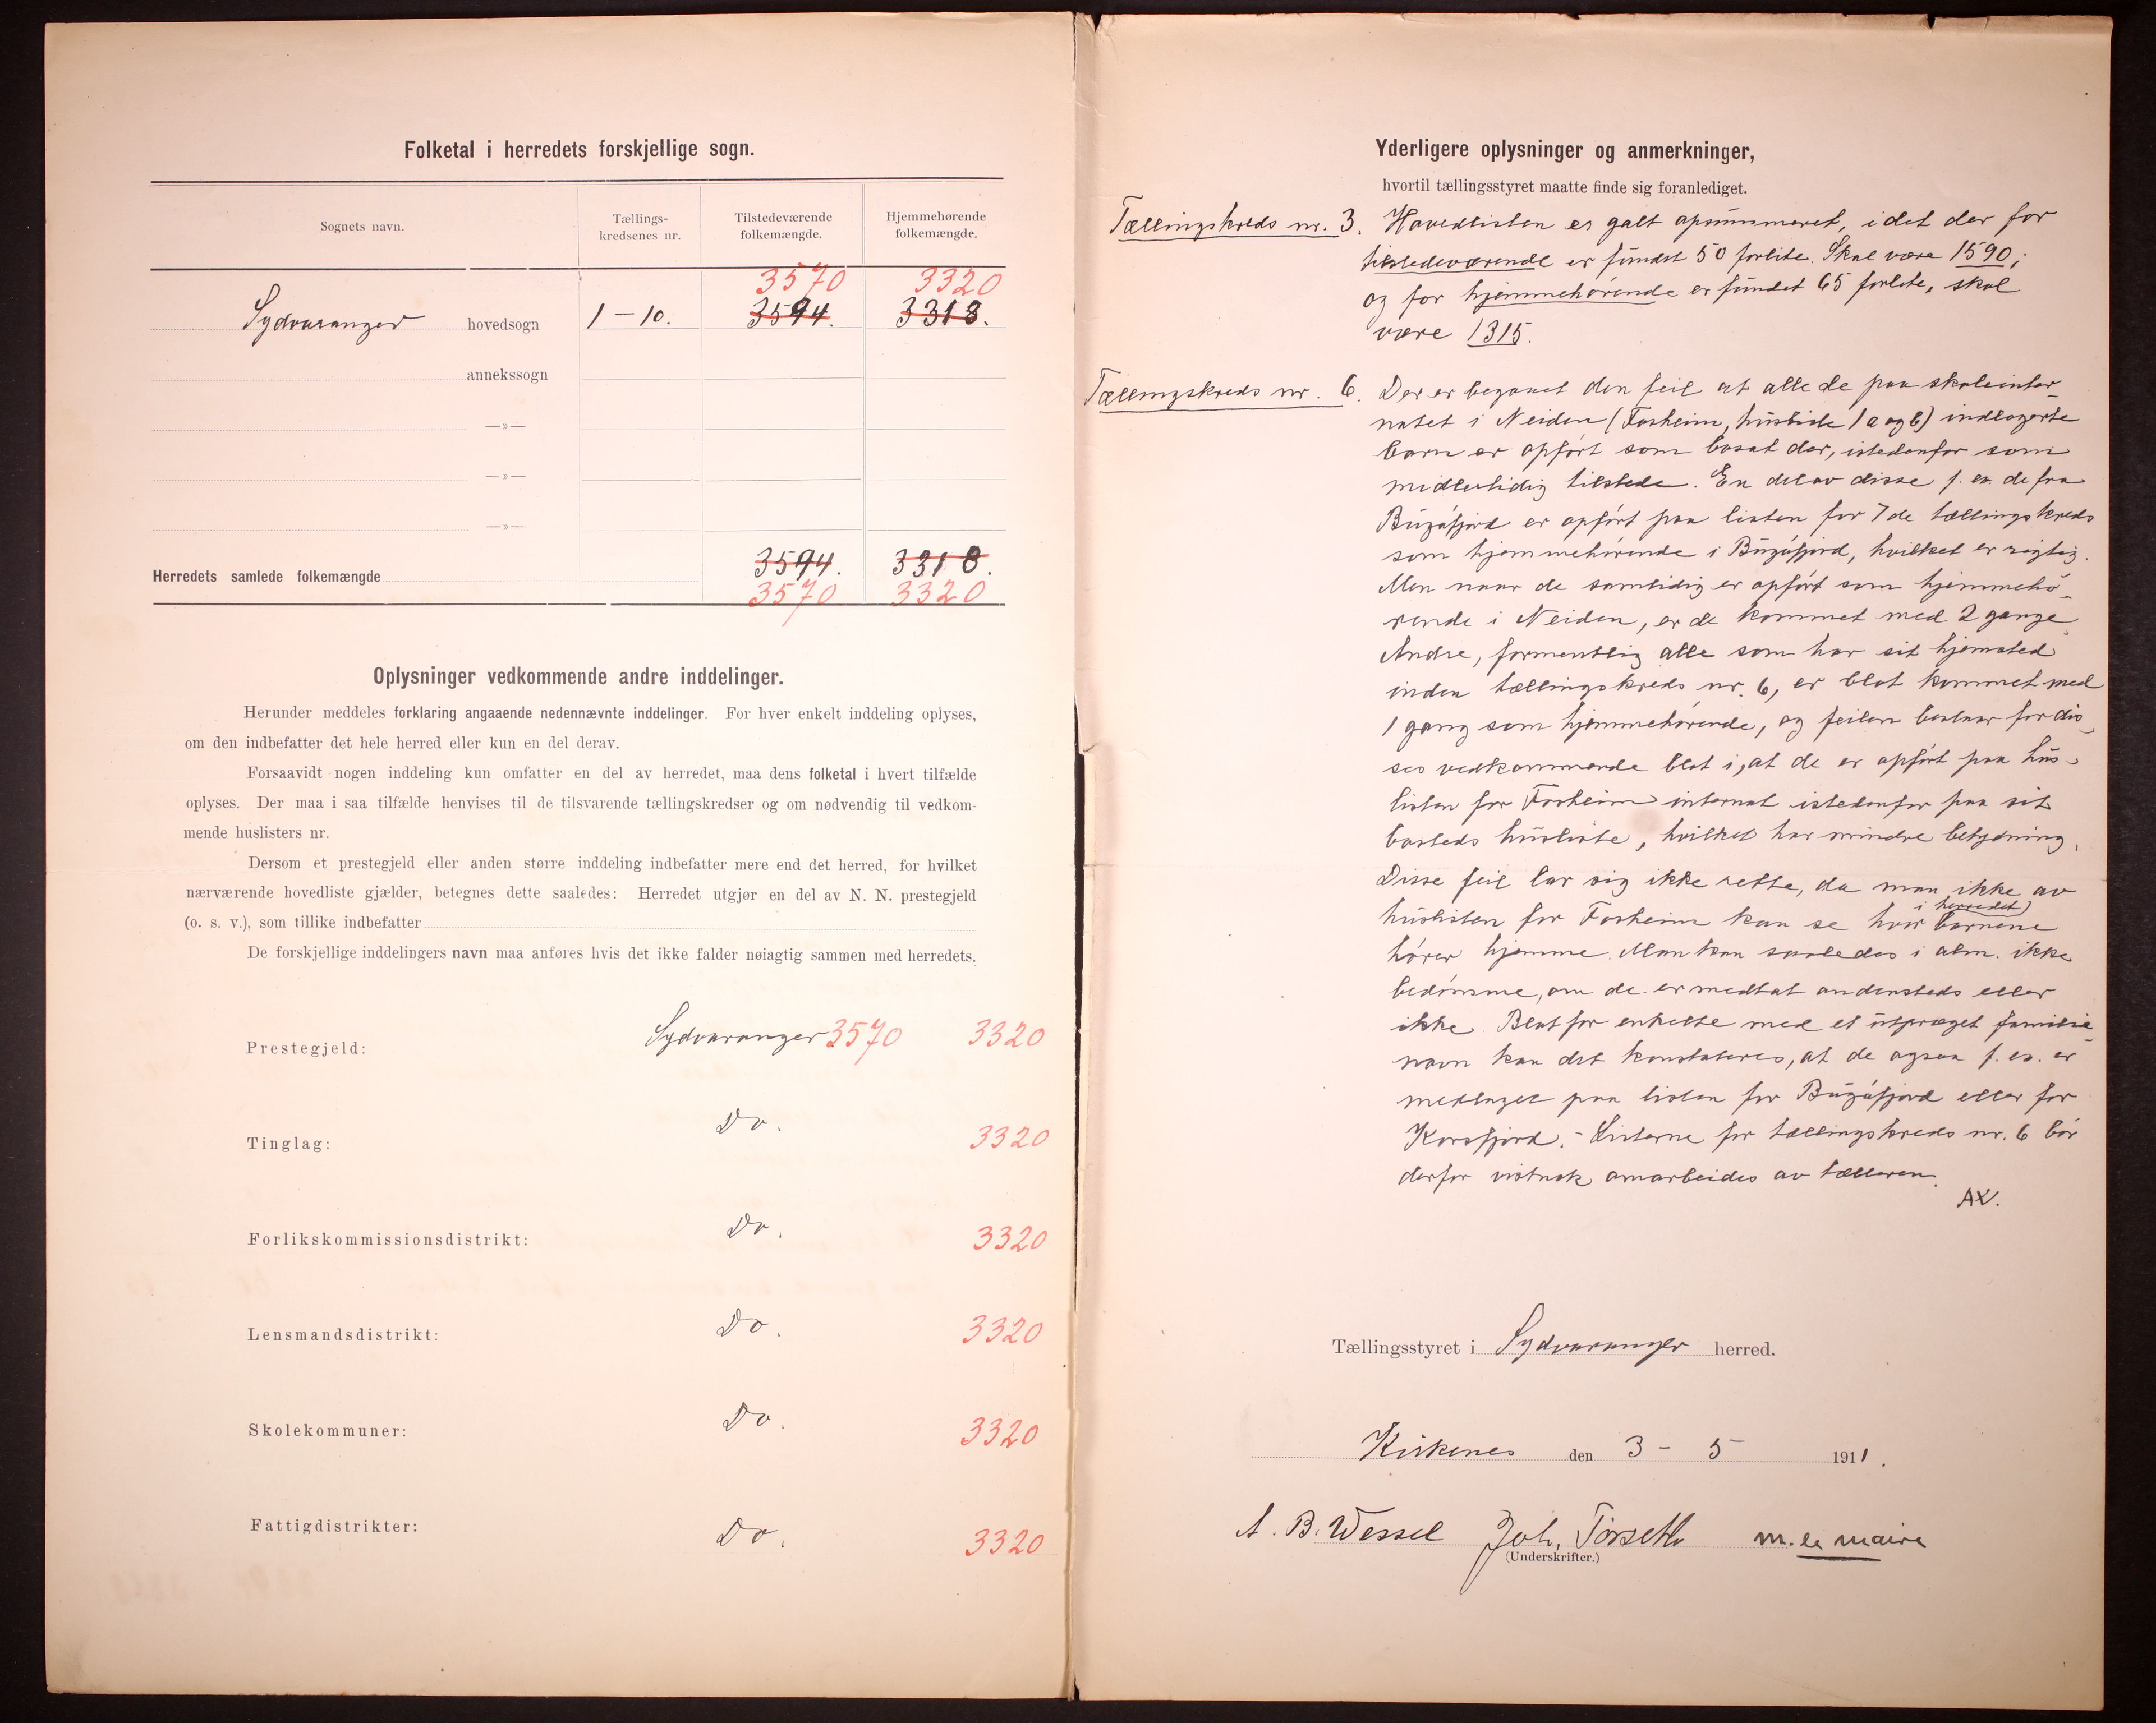 Folketal i herredets forskjellige sogn.
Sognets navn.
Tællings-
kredsenes nr.
Tilstedeværende
folkemængde.
Hjemmehørende
folkemængde.
3570 3320
Sydvaranger hovedsogn 1 – 10. 3594. 3318.
annekssogn
—»—
—»—
—»—
Herredets samlede folkemængde 3594. 3318.
3570 3320
Oplysninger vedkommende andre inddelinger.
Herunder meddeles forklaring angaaende nedennævnte inddelinger. For hver enkelt inddeling oplyses,
om den indbefatter det hele herred eller kun en del derav.
Forsaavidt nogen inddeling kun omfatter en del av herredet, maa dens folketal i hvert tilfælde
oplyses. Der maa i saa tilfælde henvises til de tilsvarende tællingskredser og om nødvendig til vedkom-
mende huslisters nr.
Dersom et prestegjeld eller anden større inddeling indbefatter mere end det herred, for hvilket
nærværende hovedliste gjælder, betegnes dette saaledes: Herredet utgjør en del av N. N. prestegjeld
(o. s. v.), som tillike indbefatter
De forskjellige inddelingers navn maa anføres hvis det ikke falder nøiagtig sammen med herredets.
Prestegjeld: Sydvaranger 3570 3320
Tinglag: Do. 3320
Forlikskommissionsdistrikt: Do. 3320
Lensmandsdistrikt: Do. 3320
Skolekommuner: Do. 3320
Fattigdistrikter: Do. 3320
Yderligere oplysninger og anmerkninger,
hvortil tællingsstyret maatte finde sig foranlediget.
Tællingskreds nr. 3. Hovedlisten er galt opsummeret, idet der for
tilstedeværende er fundet 50 forlite. Skal være 1590;
og for hjemmehørende er fundet 65 forlite, skal
være 1315.
Tællingskreds nr. 6. Der er begaaet den feil at alle de paa skoleinter-
natet i Neiden (Fosheim, husliste 1 a og b) indlogerte
barn er opført som bosat der, istedenfor som
midlertidig tilstede. En del av disse f. ex. de fra
Bugøfjord er opført paa listen for 7de tællingskreds
som hjemmehørende i Bugøfjord, hvilket er rigtig.
Men naar de samtidig er opført som hjemmehø-
rende i Neiden, er de kommet med 2 gange.
Andre, formentlig alle som har sit hjemsted
inden tællingskreds nr. 6, er blot kommet med
1 gang som hjemmehørende, og feilen bestaar for dis-
ses vedkommende blot i, at de er opført paa hus-
listen for Fosheim internat istedenfor paa sit
bosteds husliste, hvilket har mindre betydning.
Disse feil lar sig ikke rette, da man ikke av
huslisten for Fosheim kan se hvor i herredet) barnene
hører hjemme. Man kan saaledes i alm. ikke
bedømme, om de er medtat andensteds eller
ikke. Blot for enkelte med et utpræget familie-
navn kan det konstateres, at de ogsaa f. ex. er
medtaget paa listen for Bugøfjord eller for
Korsfjord. – Listerne for tællingskreds nr. 6 bør
derfor vistnok omarbeides av tælleren.
Tællingsstyret i Sydvaranger herred.
Kirkenes den 3 – 5 1911.
A. B. Wessel Joh. m. le maire
(Underskrifter.)